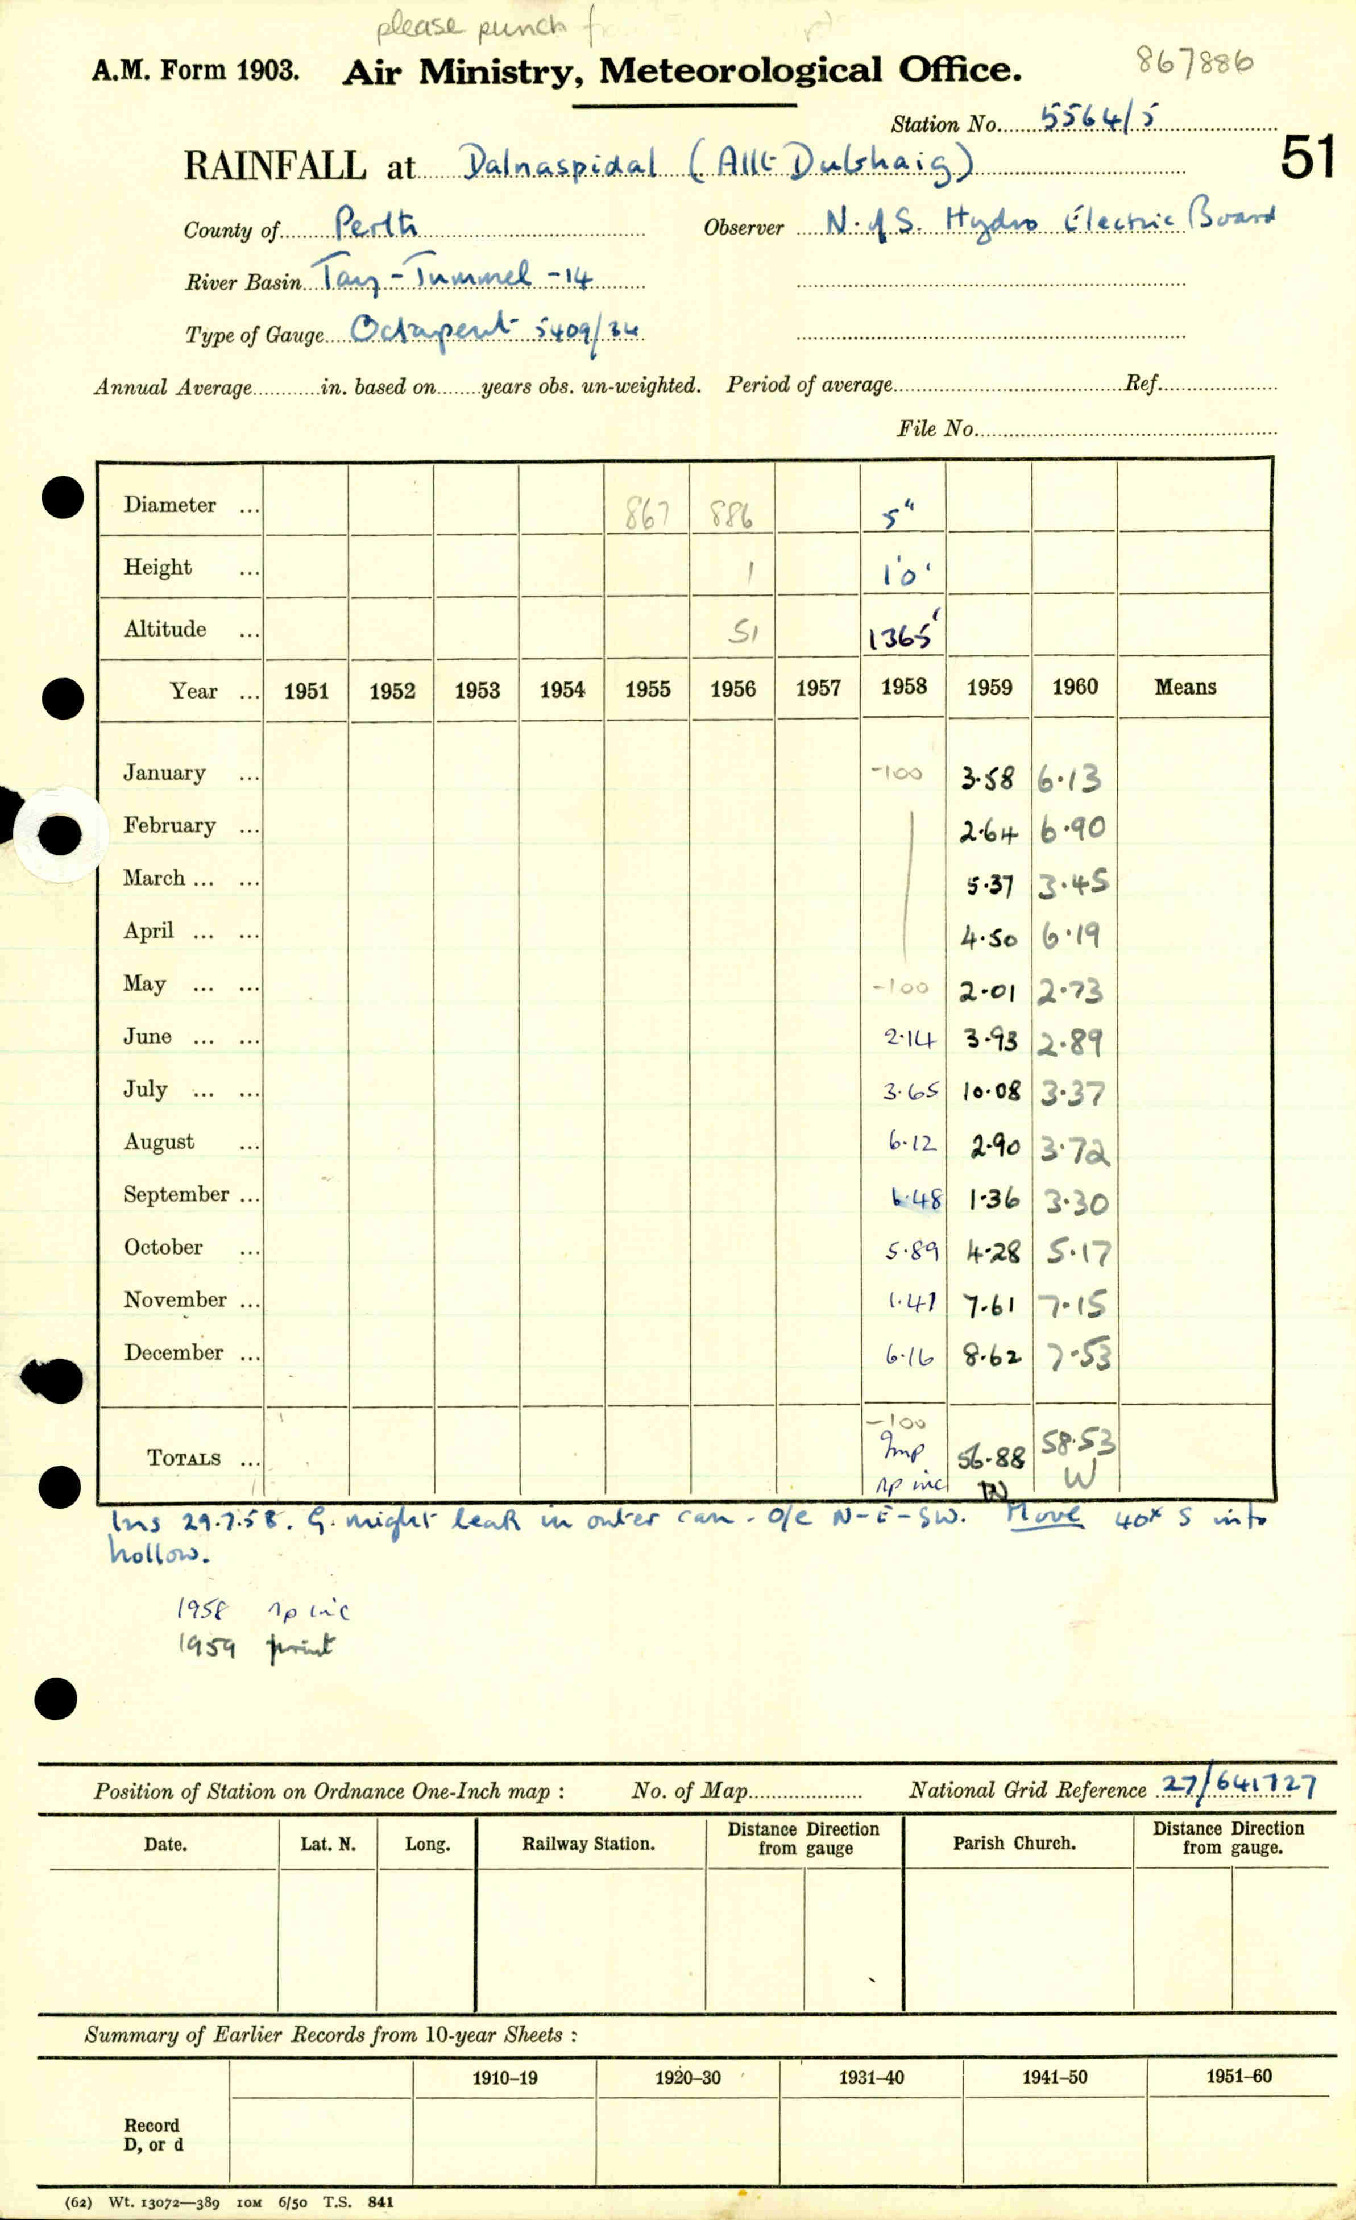 please punch
A.M. Form 1903. Air Ministry, Meteorological Office. 867886
Station No. 5564/5
RAINFALL at Dalnaspidal (Allt Dubhaig) 51
County of Perth Observer N. of S. Hydro Electric Board
River Basin Tay - Tummel - 14
Type of Gauge Octapent 5409/34
Annual Average in. based on years obs. un-weighted. Period of average Ref.
File No.
Diameter ... 867 886 5"
Height ... 1 1'0'
Altitude ... 51 1365'
Year ... 1951 1952 1953 1954 1955 1956 1957 1958 1959 1960 Means
January ... -100 3.58 6.13
February ... 2.64 6.90
March ... ... 5.37 3.45
April ... ... 4.50 6.19
May ... ... -100 2.01 2.73
June ... ... 2.14 3.93 2.89
July ... ... 3.65 10.08 3.37
August ... 6.12 2.90 3.72
September ... 6.48 1.36 3.30
October ... 5.89 4.28 5.17
November ... 1.41 7.61 7.15
December ... 6.16 8.62 7.53
-100
TOTALS ... Imp 56.88 58.53
np inc W W
Ins 29.7.58. G. might leak in outer can. O/e N-E-SW. Move 40x S into
hollow.
1958 np inc
1959 print
Position of Station on Ordnance One-Inch map : No. of Map National Grid Reference 27/641727
Date. Lat. N. Long. Railway Station. Distance from Direction gauge Parish Church. Distance from Direction gauge.
Summary of Earlier Records from 10-year Sheets :
1910–19 1920–30 1931–40 1941–50 1951–60
Record
D, or d
(62) Wt. 13072—389 10M 6/50 T.S. 841